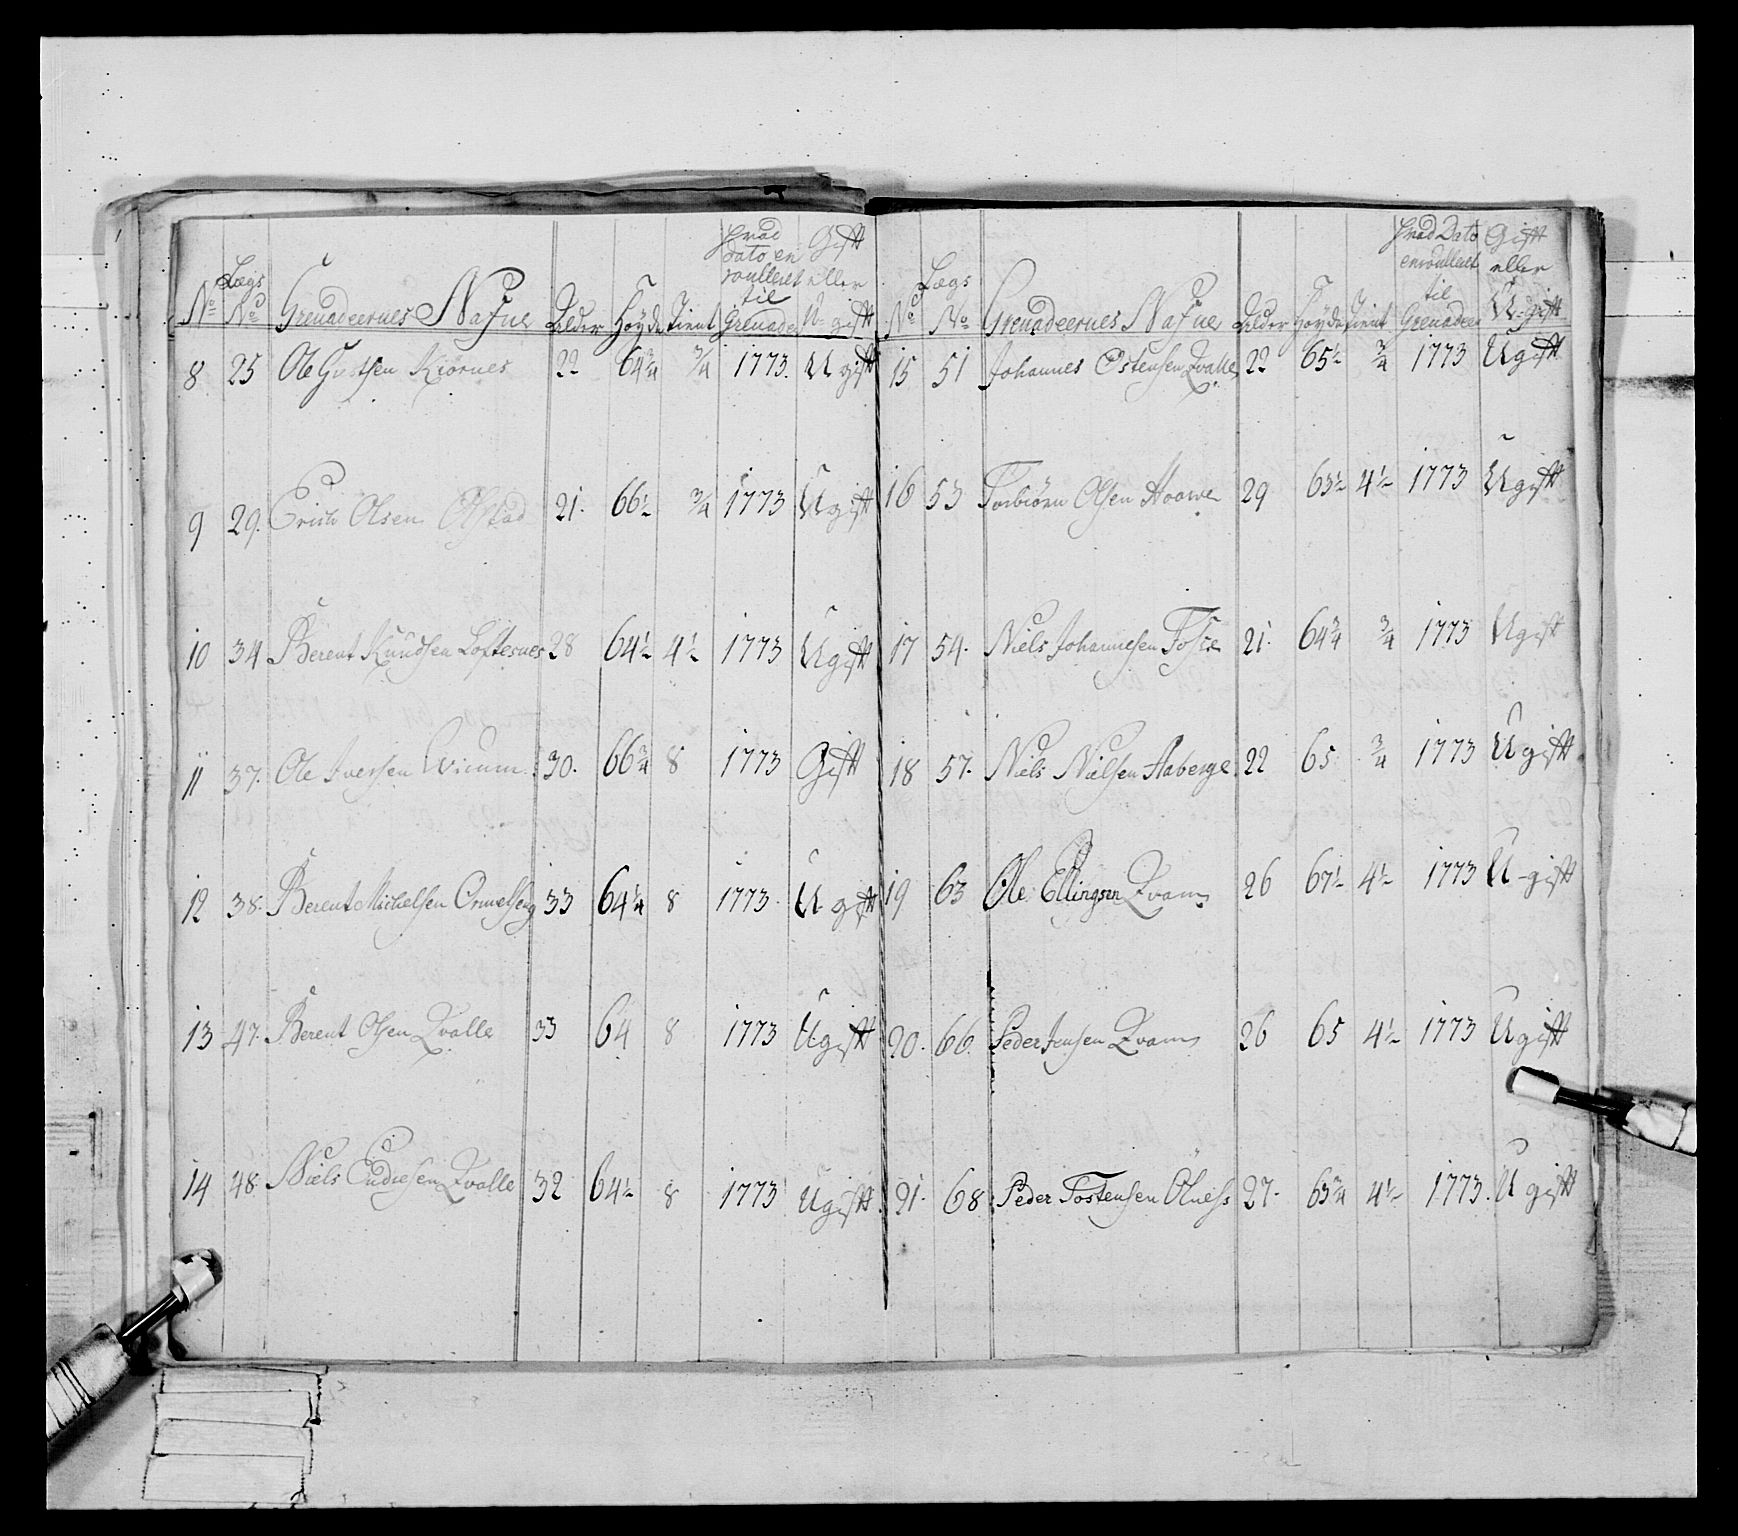 No Lægs No Grenadeernes Nafne Alder Høyde Tient hvad dato en roulleret til Grenader Gift eller U-gift
8 25 Ole Giertsen Kiørnes 22 64¾ ¾ 1773. Ugift
9 29. Erich Olsen Olstad 21. 66½ ¾ 1773 Ugift
10 34 Berent Knudsen Loftesnes 28 64½ 4½ 1773 Ugift
11 37. Ole Iversen Wicum 30. 66¾ 8 1773 Gift
12 38. Berent Michelsen 33 64¼ 8 1773. Ugift
13 47. Berent Olsen Qvalle 33 64 8 1773 Ugift
14 48. Niels Endresen Qvalle 32 64½ 8 1773 Ugift
No Lægs No Grenadeernes Nafne Alder Høyde Tient hvad Dato enroulleret til Grenadeer Gift eller U-gift
15 51 Johannes Ostensen Qvalle 22 65½ ¾ 1773 Ugift
16 53 Torbiørn Olsen Hoawe 29 63½ 4½ 1773 Ugift
17 54. Niels Johannesen Fosse 21. 64¾ ¾ 1773 Ugift
18 57. Niels Nielsen Aaberge 22 65 ¾ 1773 Ugift
19 63 Ole Ellingsen Qvam 26 67½ 4½ 1773 U-gift
20. 66. Peder Jensen Qvam 26 65 4½ 1773 Ugift
21. 68 Peder Tostensen Ølness 27. 63¾ 4½ 1773. Ugift